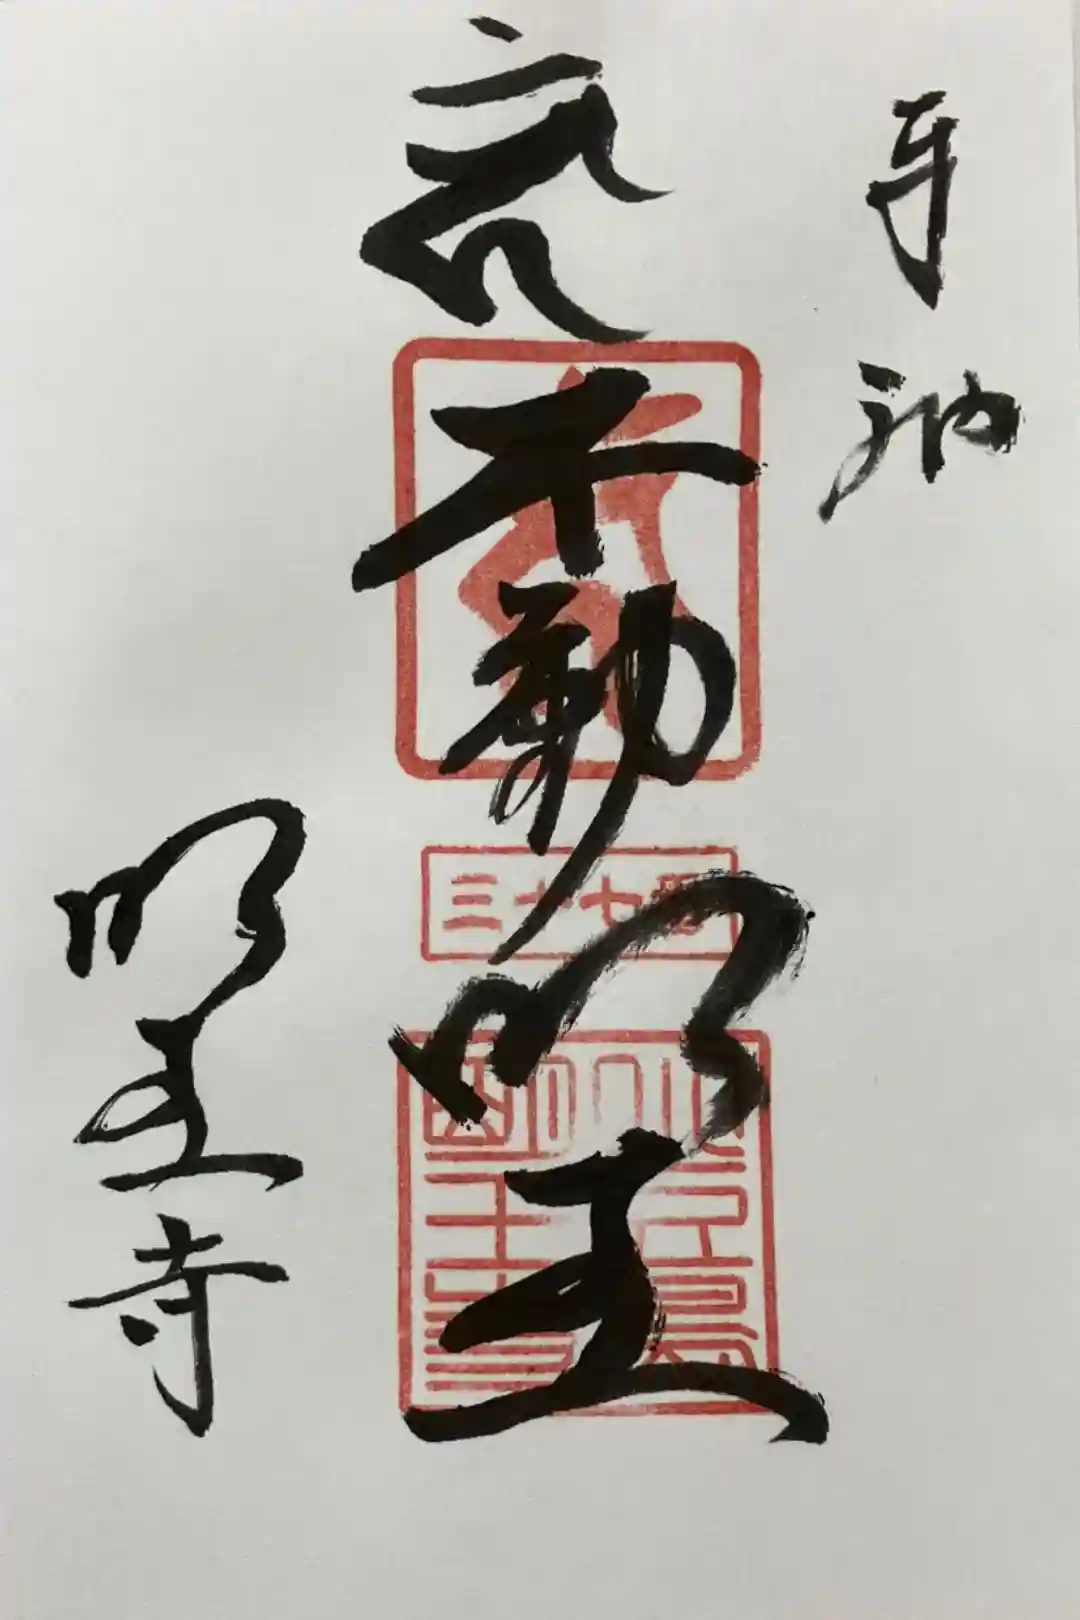 奉納
不動明王
三十七番
明王寺